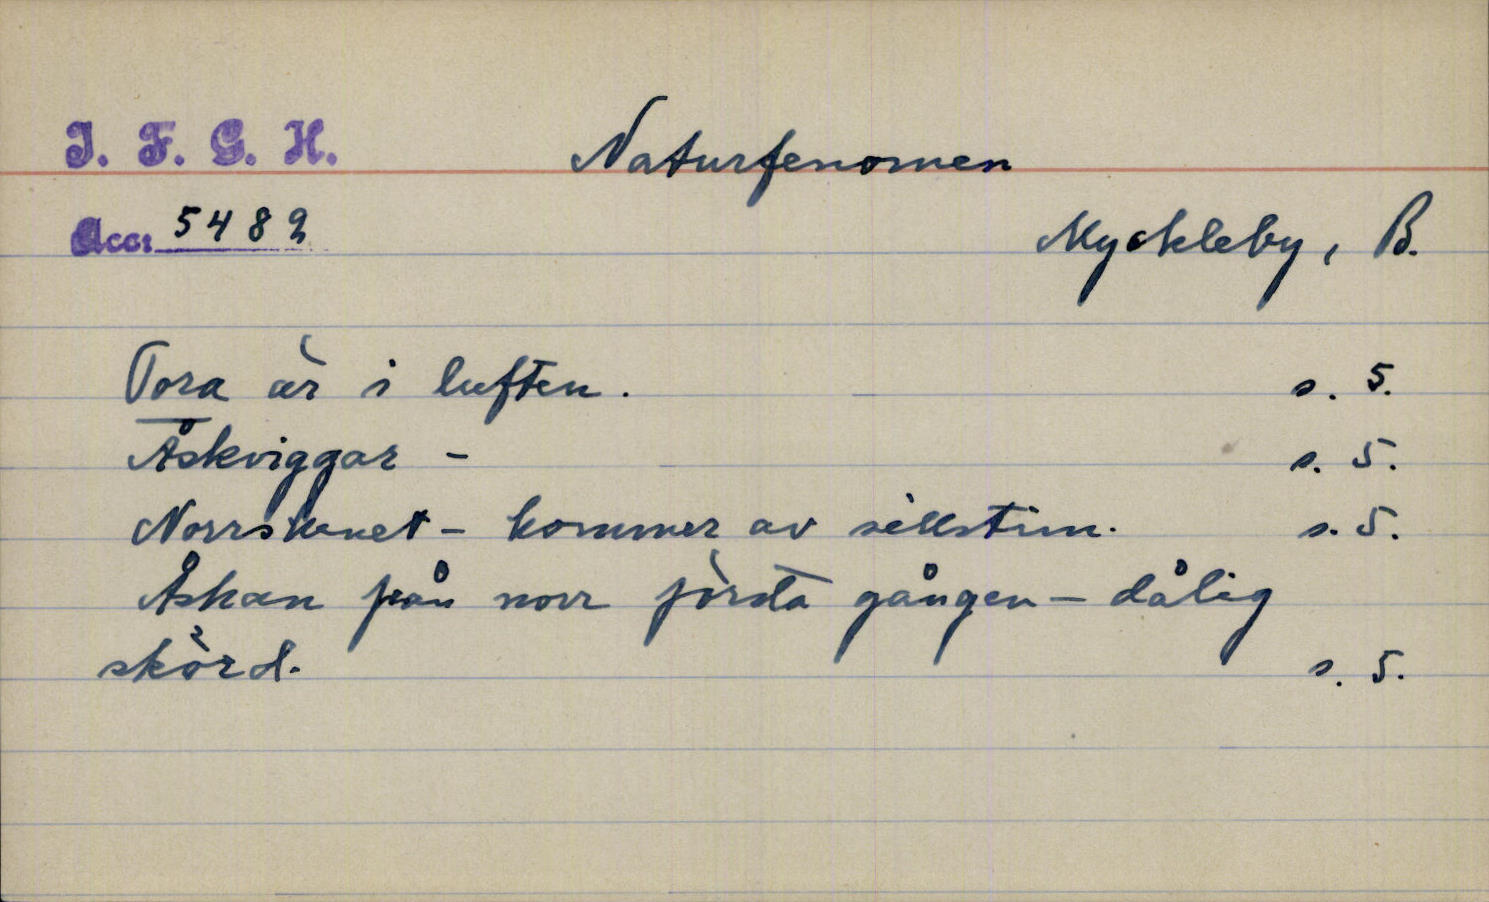 I. F. G. H.
Naturfenomen
Acc: 5482
Myckleby, B.
Tora är i luften. s. 5.
Åskviggar - s. 5.
Norrskenet - kommer av sillstim. s. 5.
Åskan från norr första gången - dålig
skörd. s. 5.